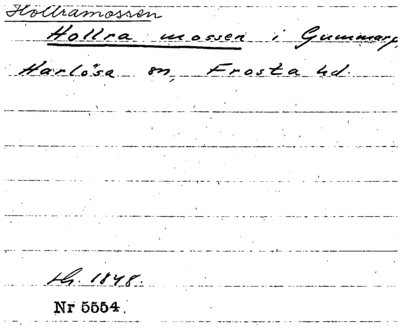 Hollramossen
Hollra mossen i Gummarp,
Harlösa sn, Frosta hd.
1848.
Nr 5554.